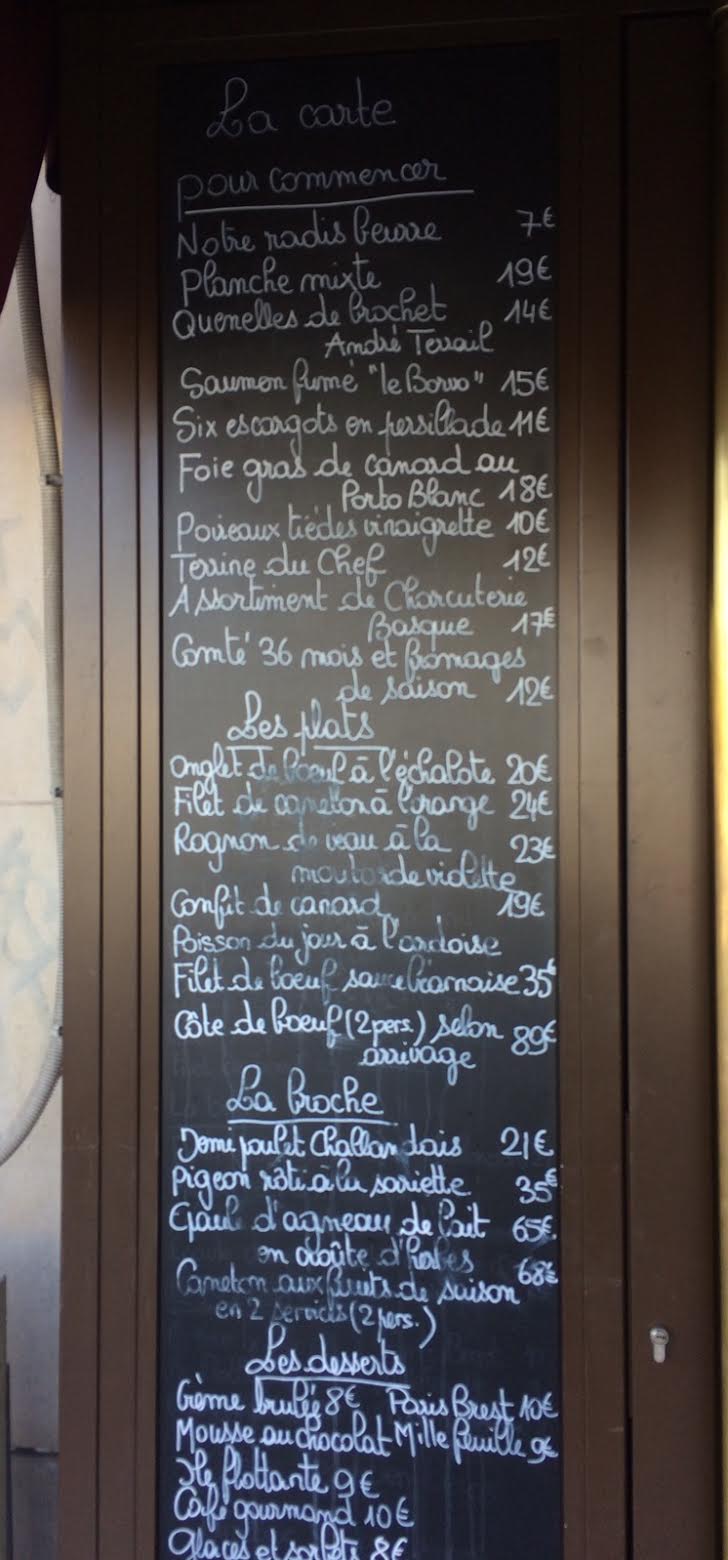 La carte
pour commencer
Notre radis beurre 7€
Planche mixte 19€
Quenelles de brochet 14€
André Terrail
Saumon fumé "le Borvo" 15€
Six escargots en persillade 11€
Foie gras de canard au
Porto Blanc 18€
Poireaux tièdes vinaigrette 10€
Terrine du Chef 12€
Assortiment de Charcuterie
Basque 17€
Comté 36 mois et fromages
de saison 12€
Les plats
Onglet de boeuf à l'échalote 20€
Filet de caneton à l'orange 24€
Rognon de veau à la 23€
moutarde violette
Confit de canard 19€
Poisson du jour à l'ardoise
Filet de boeuf sauce béarnaise 35€
Côte de boeuf (2 pers.) selon 89€
arrivage
La broche
Demi poulet Challandais 21€
Pigeon rôti à la sariette 35€
d'agneau de lait 65€
en croûte d'herbes
Caneton aux fruits de saison 68€
en 2 services (2 pers.)
Les desserts
Crème brulée 8€ Paris Brest 10€
Mousse au chocolat Mille feuille 9€
Ile flottante 9€
Café gourmand 10€
Glaces et sorbets 8€